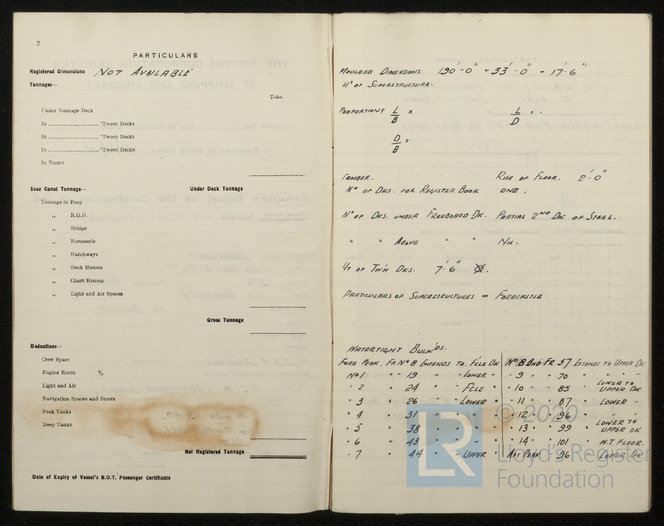 2
PARTICULARS
Registered Dimensions NOT AVAILABLE
Tonnage—
Tons.
Under Tonnage Deck
In 'Tween Decks
In 'Tween Decks
In 'Tween Decks
In Turret
Suez Canal Tonnage— Under Deck Tonnage
Tonnage in Poop
" R.Q.D.
" Bridge
" Forecastle
" Hatchways
" Deck Houses
" Chart Houses
" Light and Air Spaces
Gross Tonnage
Deductions—
Crew Space
Engine Room %
Light and Air
Navigation Spaces and Stores
Peak Tanks
Deep Tanks
Net Registered Tonnage
Date of Expiry of Vessel's B.O.T. Passenger Certificate
MOULDED DIMENSIONS. 190'-0" × 33'-0" × 17'-6"
HT OF SUPERSTRUCTURE.
PROPORTIONS L/B = L/D =
D/B =
CAMBER. RISE OF FLOOR. 2'-0"
NO OF DKS. FOR REGISTER BOOK ONE.
NO OF DKS. UNDER FREEBOARD DK. PARTIAL 2ND DK OF STEEL.
" " ABOVE " " NIL.
HT OF TW'N DKS. 7'-6"
PARTICULARS OF SUPERSTRUCTURES = FORECASTLE
WATERTIGHT BULK'DS.
FORE PEAK. FR NO 8 EXTENDS TO. F'CLE DK NO 8 BHD FR. 57 EXTENDS TO UPPER DK
NO 1 " 19 " " LOWER " " 9 " " 70 " " "
" 2 " 24 " " F'CLE " " 10 " " 85 " LOWER TO UPPER DK
" 3 " 26 " " LOWER " " 11 " " 87 " LOWER "
" 4 " 31 " " " " " 12 " " 96 " " "
" 5 " 38 " " " " " 13 " " 99 " LOWER TO UPPER DK
" 6 " 43 " " " " " 14 " " 101 " W.T. FLOOR.
" 7 " 44 " " UPPER " AFT PEAK " 96 " LOWER DK
© 2020
LR
Lloyd's Register
Foundation